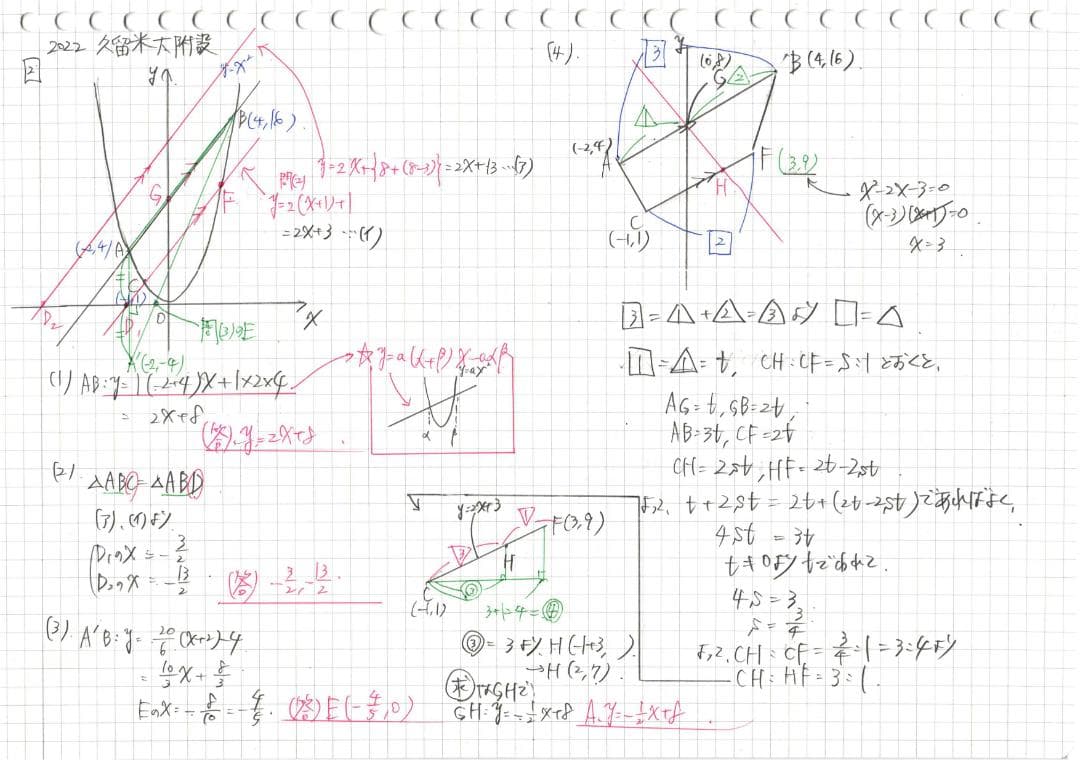 2022 久留米大附設
2
y
y=x²
B(4,16)
G
F
(-2,4)A
C
(-1,1)
D₂
D₁
O
x
A'(-2,-4)
問(3)のE
y=2x+{8+(8-3)}=2x+13…(ア)
問(2)
y=2(x+1)+1
=2x+3…(イ)
(1) AB:y=1(-2+4)x+1×2×4
= 2x+8
(答) y=2x+8
☆y=a(α+β)x-aαβ
y=ax²
α β
(2).
△ABC=△ABD
(ア)、(イ)より
D₁のx=-3/2
D₂のx=-13/2
(答) -3/2,-13/2.
(3). A'B:y=20/6(x+2)-4
=10/3x+8/3
Eのx=-8/10=-4/5. (答)E(-4/5,0)
(4).
3
y
(0,8)
G
2
B(4,16)
1
(-2,4)
A
F(3,9)
H
C
(-1,1)
2
x²-2x-3=0
(x-3)(x+1)=0
x=3
3=1+2=3より □=△
1=1=t, CH:CF=s:1とおくと、
AG=t,GB=2t,
AB=3t,CF=2t
CH=2st,HF=2t-2st.
よって、t+2st=2t+(2t-2st)であればよく、
4st=3t
t≠0よりtでわれて.
4s=3.
s=3/4
よって、CH:CF=3/4:1=3:4より
CH:HF=3:1.
y=2x+3
1
F(3,9)
3
H
C
(-1,1)
3
3+1=4=4
3=3より、H(-1+3, ).
→H(2,7).
求はGHで
GH:y=-1/2x+8 A.y=-1/2x+8.